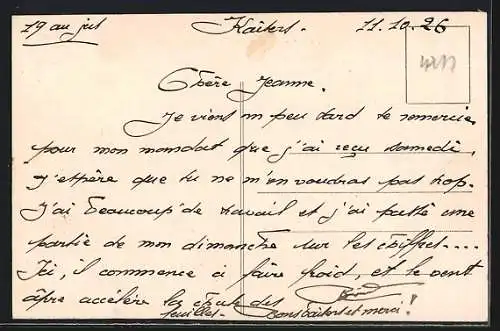 19 au jus Kaiters. 11.10.26
Chère Jeanne.
Je viens un peu tard te remercier
pour mon mandat que j'ai reçu samedi,
J'espère que tu ne m'en voudras pas trop.
J'ai beaucoup de travail et j'ai passé une
partie de mon dimanche sur les chiffres....
Ici, il commence à faire froid, et le vent
âpre accélère la chute des
feuilles. Bons baisers et merci!